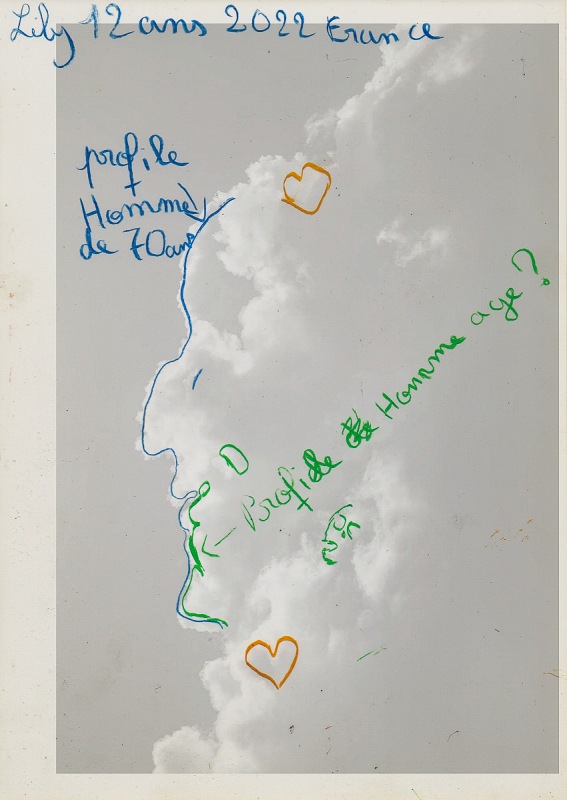 Lily 12 ans 2022 France
profile
Homme
de 70ans
Profile Homme age ?